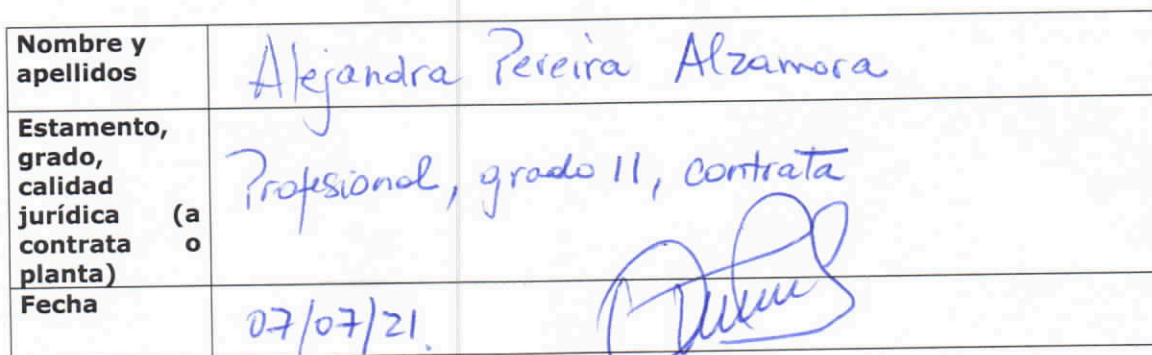 Nombre y
apellidos
Alejandra Pereira Alzamora
Estamento,
grado,
calidad
jurídica (a
contrata o
planta)
Profesional, grado 11, contrata
Fecha
07/07/21.